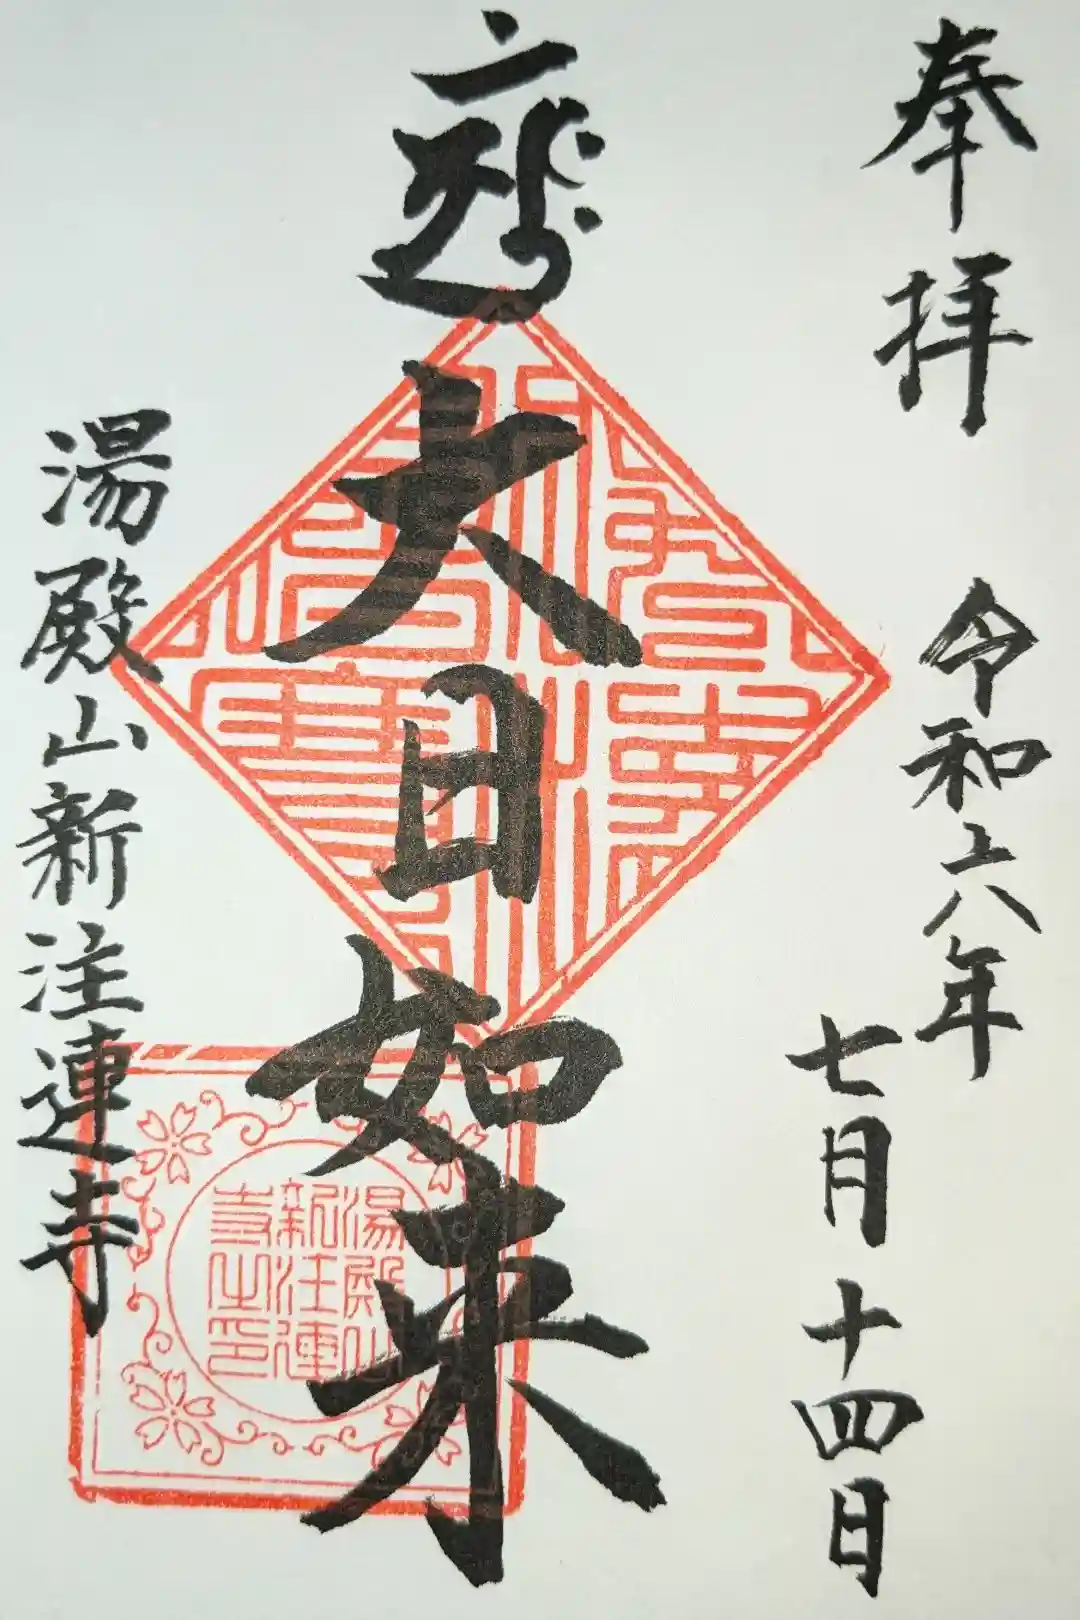 奉拝 令和六年
七月十四日
大日如来
湯殿山新注連寺
湯殿山
新注連
寺之印